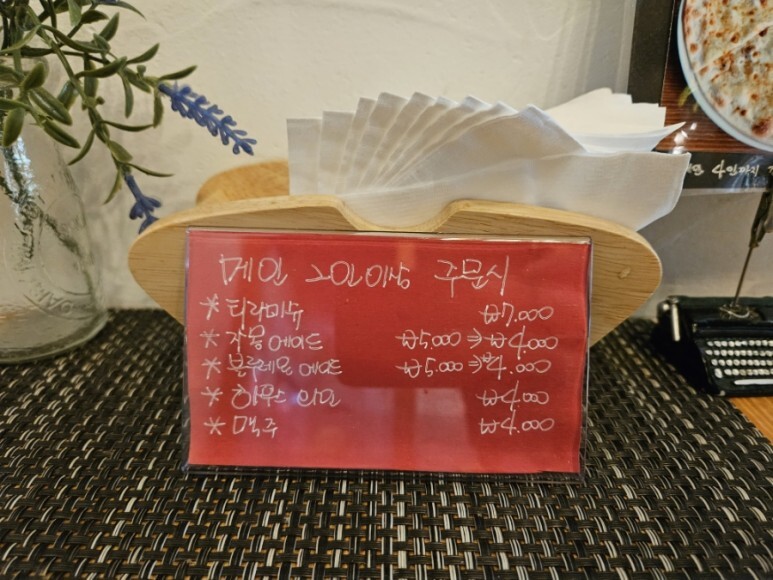 메인 2인이상 주문시
* 티라미슈 ₩7.000
* 자몽에이드 ₩5.000 ⇒ ₩4.000
* 블루레몬에이드 ₩5.000 ⇒ ₩4.000
* 하우스 와인 ₩4.000
* 맥주 ₩4.000